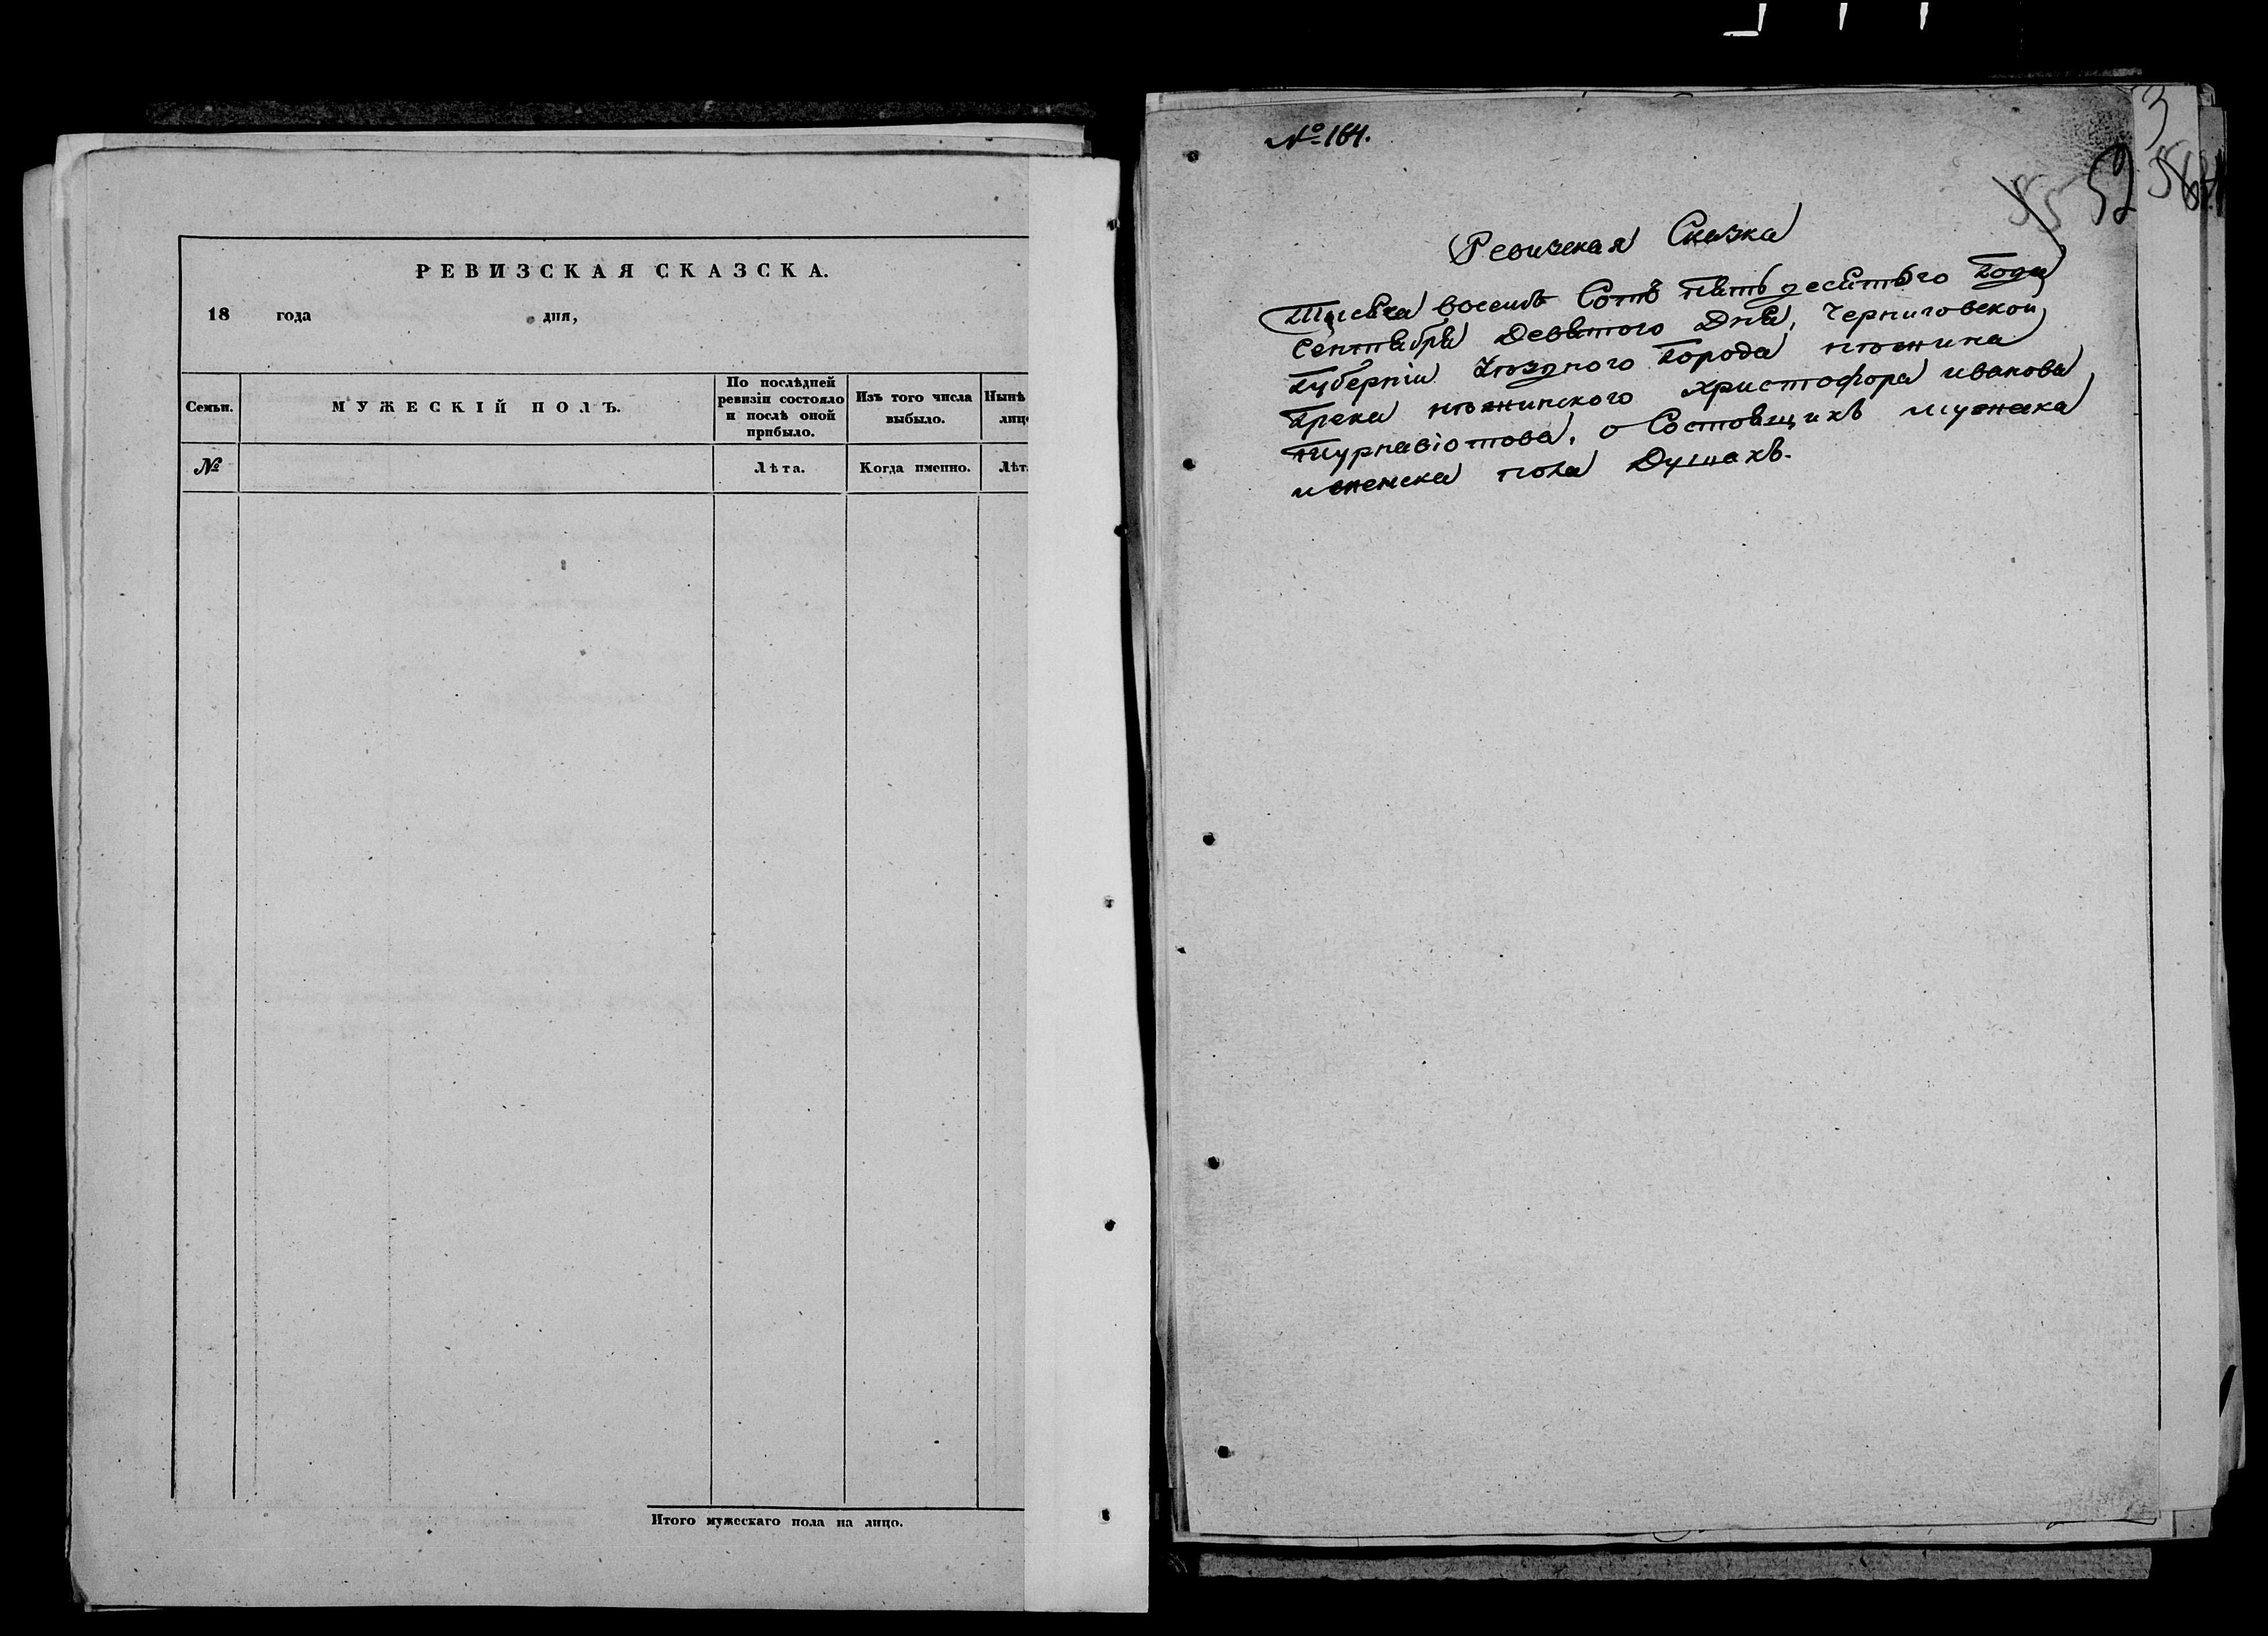 РЕВИЗСКАЯ СКАЗСКА.
18 года дня,
Семьи.
МУЖЕСКІЙ ПОЛЪ.
По послѣдней
ревизіи состояло
и послѣ оной
прибыло.
Изъ того числа
выбыло.
Нынѣ
лиц
№
Лѣта.
Когда именно.
Лѣт
Итого мужескаго пола на лицо.
№ 164.
52
Ревизская Сказка
Тысяча восемь Сотъ пятьдесятого Года
Сентября Девятого Дня, Черниговской
Губерніи Уѣздного Города нѣжина
Грека нѣжинского христофора иванова
Мурнавіотова, о Состоящихъ мужеска
и женска пола Душахъ.